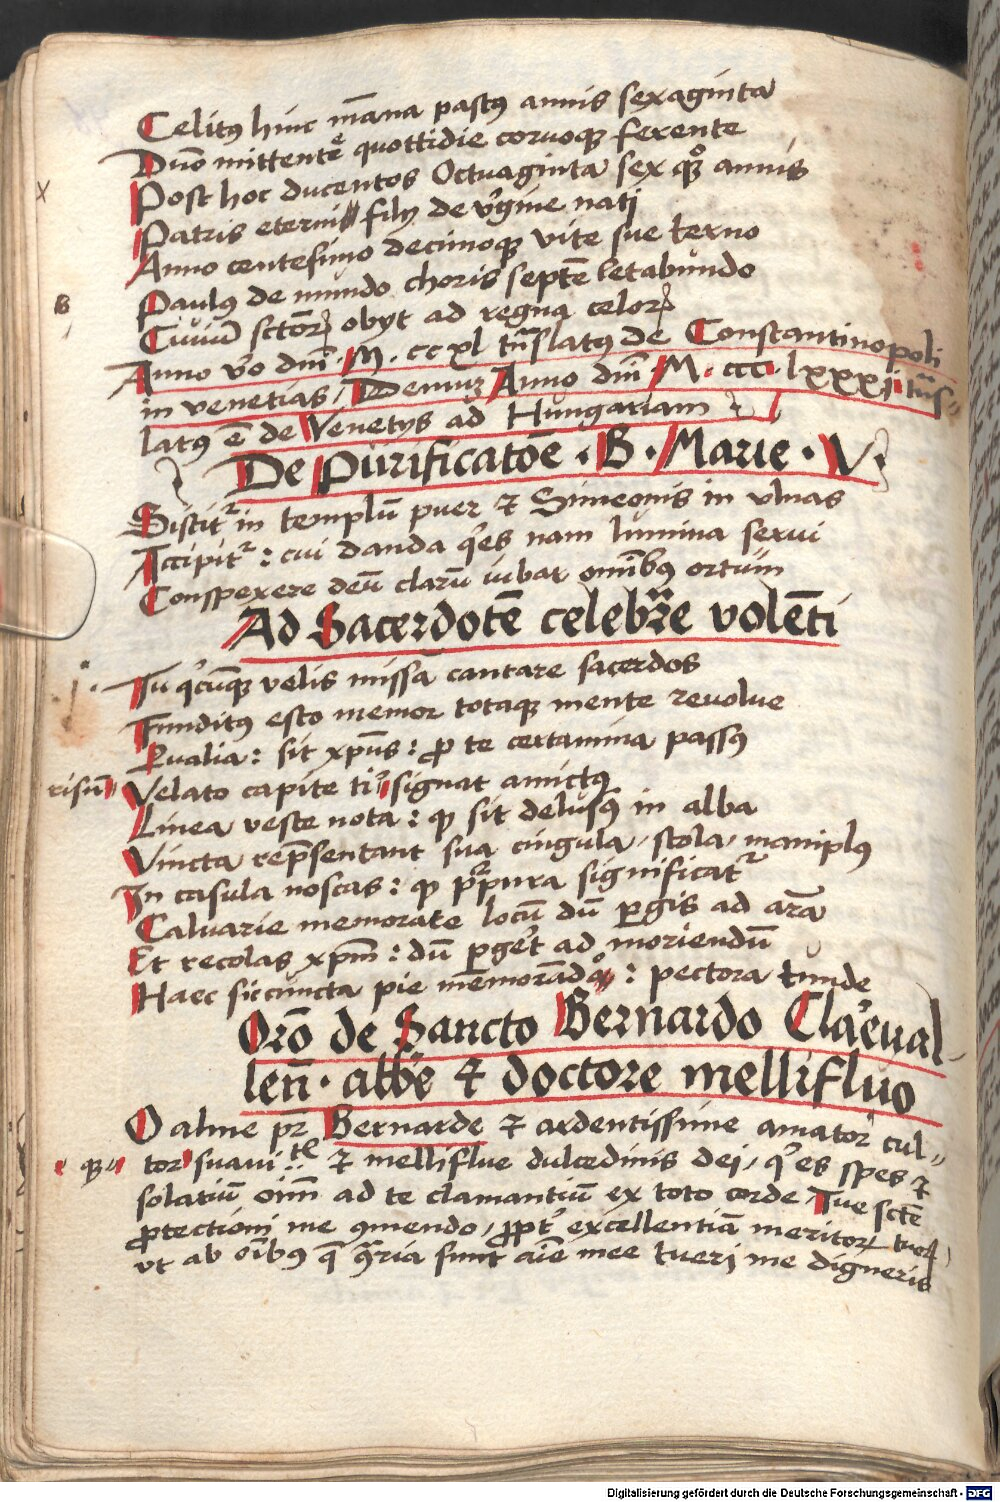 Celitꝰ hinc m̄ana pastꝰ annis sexaginta
Duō mittente quottidie coruoqꝫ ferente
Post hoc ducentos Octuaginta sex qꝫ annis
Patris eterni filij de v̓gine nati
Anno centesimo decimoqꝫ vite sue terno
Paulꝰ de mundo choris septē letabundo
Ciuiū sctōꝝ obyt ad regna celoꝝ
Anno v̓o dn̄i · M · cc xl trn̄slatꝰ de Constantinopoli
in venetias / Demuꝫ Anno dn̄i M · ccc · lxxxi trn̄s-
latꝰ ē de Venetys ad Hungariam
De Purificatōe · B · Marie · V ·
Sistit᷑ in templū puer ⁊ Simeonis in vlnas
Accipit᷑ : cui danda q̓es nam lumina serui
Conspexere deū clarū iubar omībꝰ ortum
Ad Sacerdotē celebrar̄e volēti
Tu q̓cūqꝫ velis missā cantare sacerdos
Funditꝰ esto memor totaqꝫ mente reuolue
Qualia : sit xp̄us : ꝓ te certamina passꝰ
risū Velato capite ti᷑ signat amictꝰ
Linea veste nota : ꝙ sit delusꝰ in alba
Vincta rep̄sentant sua cingula / stola / maniplꝰ
In casula noscas : ꝙ pr̄pura significat᷑
Caluarie memorate locū dū ꝑgis ad arā
Et recolas xp̄m : dū ꝑget ad moriendū
Haec siccincta pie memorādo : pectora tunde
Orō de Sancto Bernardo Clareual-
len̄ · abbē ⁊ doctore mellifluo
O alme pr̄ Bernarde ⁊ ardentissime amator cul-
qꝫ tor suaui tꝭ ⁊ melliflue dulcedinis dei / q̓ es spes ⁊
solatiū oīm ad te clamantiū ex toto corde / Tue sctē
ꝓtectioni me ꝯmendo / ꝓpt̓ excellentiā meritoꝝ tuoꝝ
vt ab oībꝰ q̄ ꝯtraria sunt aīe mee tueri me digneris
Digitalisierung gefördert durch die Deutsche Forschungsgemeinschaft - DFG